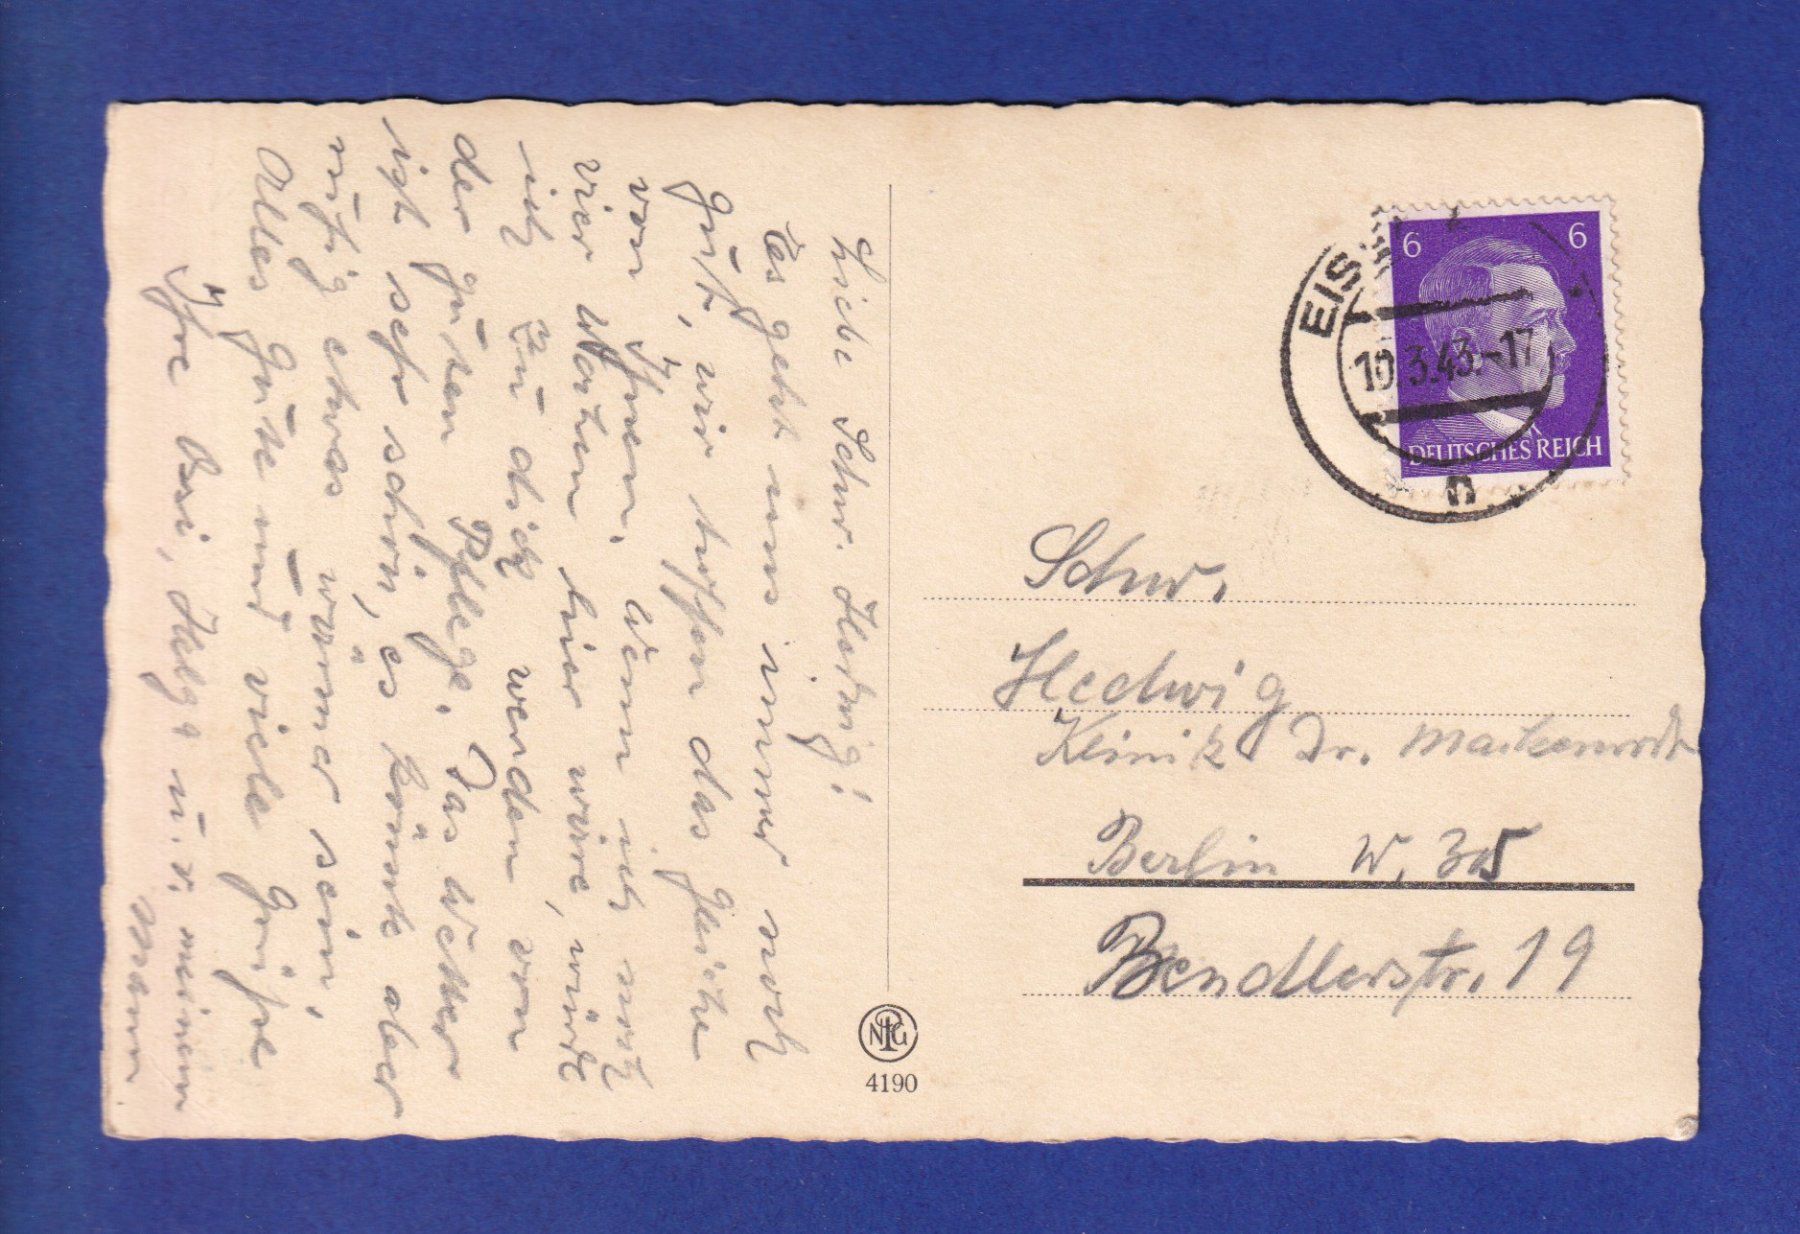 Liebe Schw. Hedwig!
Es geht uns immer noch
gut, wir hoffen das gleiche
von Ihnen. Wenn ich noch
vier Wochen hier wäre, würde
ich zu dick werden von
der guten Pflege. Das Wetter
ist sehr schön, es könnte aber
ruhig etwas wärmer sein.
Alles Gute und viele Grüße
Ihre Helga u. v. meinem
Mann
6 6
DEUTSCHES REICH
EIS
10.3.43.-17
n
Schw.
Hedwig
Klinik Dr.
Berlin W. 35
Bendlerstr. 19
NPG
4190